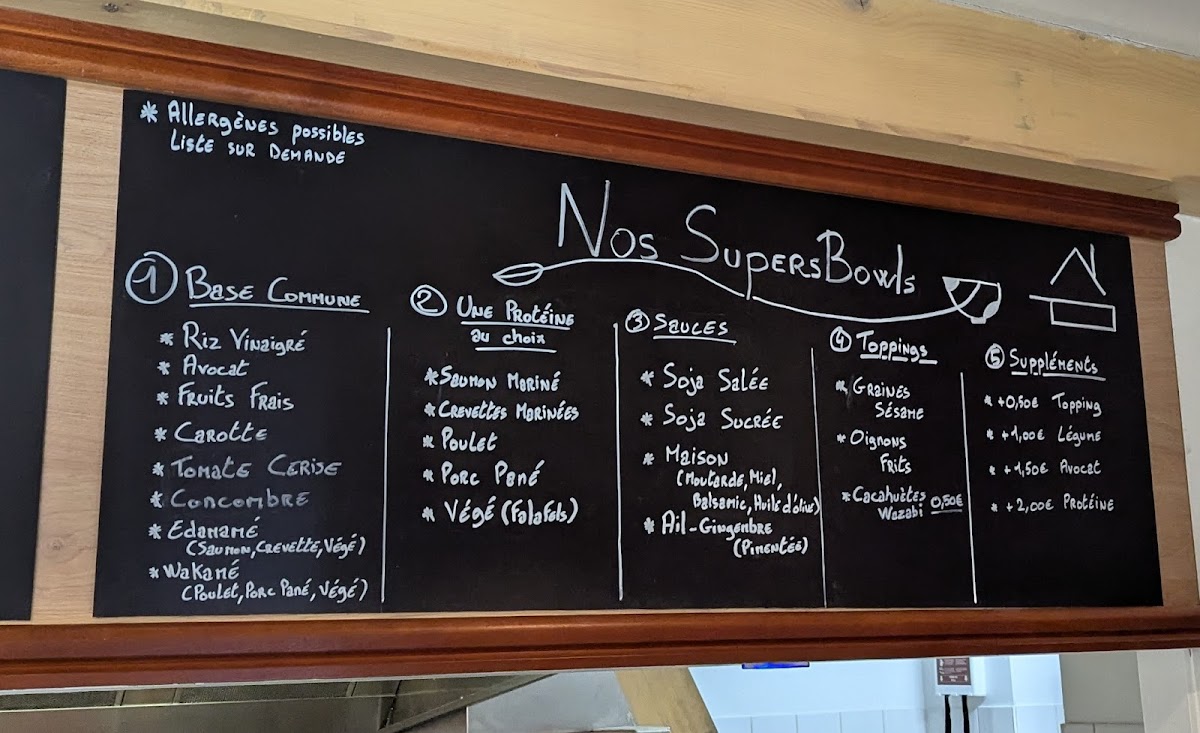 * Allergènes possibles
Liste sur Demande
Nos SupersBowls
1 Base Commune
* Riz Vinaigré
* Avocat
* Fruits Frais
* Carotte
* Tomate Cerise
* Concombre
* Edamamé
(Saumon, Crevette, Végé)
* Wakamé
(Poulet, Porc Pané, Végé)
2 Une Protéine
au choix
* Saumon Mariné
* Crevettes Marinées
* Poulet
* Porc Pané
* Végé (Falafels)
3 Sauces
* Soja Salée
* Soja Sucrée
* Maison
(Moutarde, Miel,
Balsamic, Huile d'olive)
* Ail-Gingembre
(Pimentée)
4 Toppings
* Graines
Sésame
* Oignons
Frits
* Cacahuètes
Wazabi 0,50€
5 Suppléments
* +0,50€ Topping
* +1,00€ Légume
* +1,50€ Avocat
* +2,00€ Protéine